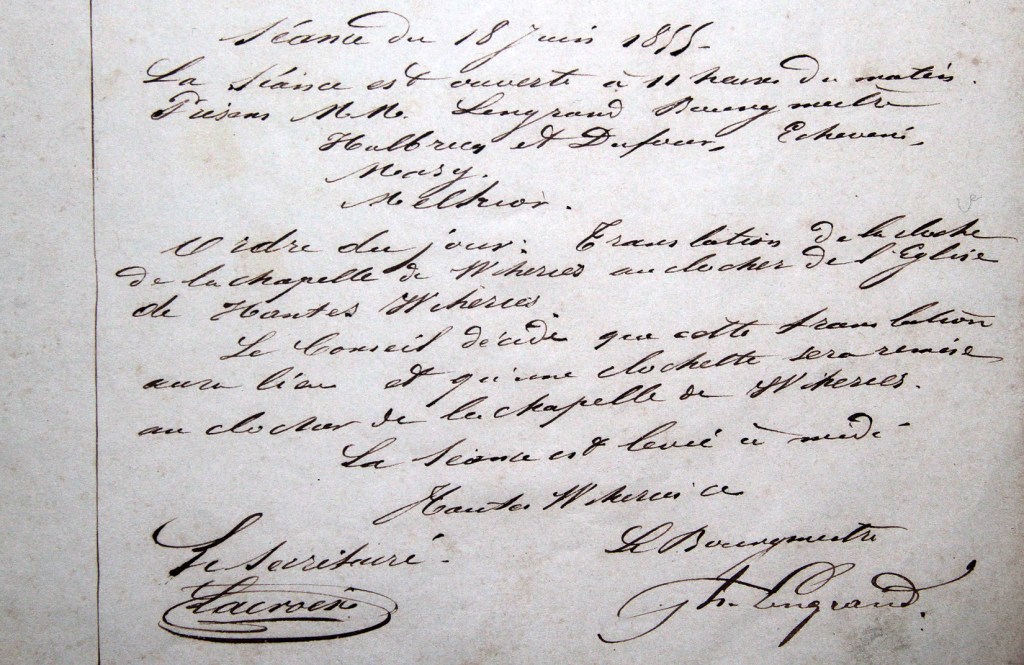 Séance du 18 Juin 1855
La Séance est ouverte à 11 heures du matin.
Présens M.M. Lengrand Bourgmestre
Halbrecq et Dufour, Echevins,
Mary.
Melkior.
Ordre du jour: Translation de la cloche
de la chapelle de Wiheries au clocher de l'Eglise
de Hantes Wiheries
Le Conseil décide que cette translation
aura lieu et qu'une clochette sera remise
au clocher de la chapelle de Wiheries.
La Séance est levée à midi
Hantes Wiheries ce
Le Secrétaire.
Le Bourgmestre
Lacroix
Lengrand.